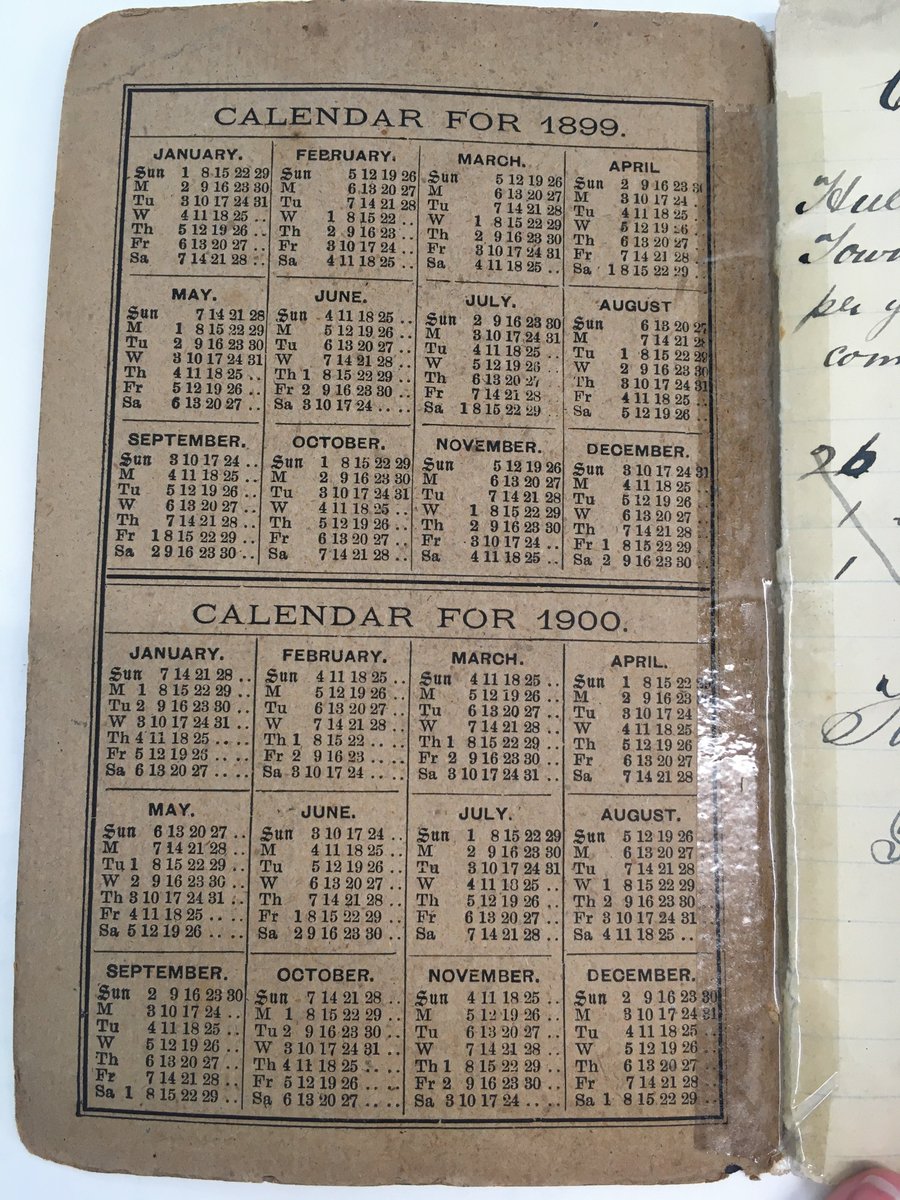 CALENDAR FOR 1899.
JANUARY.
Sun 1 8 15 22 29
M 2 9 16 23 30
Tu 3 10 17 24 31
W 4 11 18 25 ..
Th 5 12 19 26 ..
Fr 6 13 20 27 ..
Sa 7 14 21 28 ..
FEBRUARY.
Sun 5 12 19 26
M 6 13 20 27
Tu 7 14 21 28
W 1 8 15 22 ..
Th 2 9 16 23 ..
Fr 3 10 17 24 ..
Sa 4 11 18 25 ..
MARCH.
Sun 5 12 19 26
M 6 13 20 27
Tu 7 14 21 28
W 1 8 15 22 29
Th 2 9 16 23 30
Fr 3 10 17 24 31
Sa 4 11 18 25 ..
APRIL
Sun 2 9 16 23 30
M 3 10 17 24 ..
Tu 4 11 18 25 ..
W 5 12 19 26 ..
Th 6 13 20 27 ..
Fr 7 14 21 28 ..
Sa 1 8 15 22 29 ..
MAY.
Sun 7 14 21 28
M 1 8 15 22 29
Tu 2 9 16 23 30
W 3 10 17 24 31
Th 4 11 18 25 ..
Fr 5 12 19 26 ..
Sa 6 13 20 27 ..
JUNE.
Sun 4 11 18 25 ..
M 5 12 19 26 ..
Tu 6 13 20 27 ..
W 7 14 21 28 ..
Th 1 8 15 22 29 ..
Fr 2 9 16 23 30 ..
Sa 3 10 17 24 .. ..
JULY.
Sun 2 9 16 23 30
M 3 10 17 24 31
Tu 4 11 18 25 ..
W 5 12 19 26 ..
Th 6 13 20 27 ..
Fr 7 14 21 28 ..
Sa 1 8 15 22 29 ..
AUGUST
Sun 6 13 20 27
M 7 14 21 28
Tu 1 8 15 22 29
W 2 9 16 23 30
Th 3 10 17 24 31
Fr 4 11 18 25 ..
Sa 5 12 19 26 ..
SEPTEMBER.
Sun 3 10 17 24 ..
M 4 11 18 25 ..
Tu 5 12 19 26 ..
W 6 13 20 27 ..
Th 7 14 21 28 ..
Fr 1 8 15 22 29 ..
Sa 2 9 16 23 30 ..
OCTOBER.
Sun 1 8 15 22 29
M 2 9 16 23 30
Tu 3 10 17 24 31
W 4 11 18 25 ..
Th 5 12 19 26 ..
Fr 6 13 20 27 ..
Sa 7 14 21 28 ..
NOVEMBER.
Sun 5 12 19 26
M 6 13 20 27
Tu 7 14 21 28
W 1 8 15 22 29
Th 2 9 16 23 30
Fr 3 10 17 24 ..
Sa 4 11 18 25 ..
DECEMBER.
Sun 3 10 17 24 31
M 4 11 18 25 ..
Tu 5 12 19 26 ..
W 6 13 20 27 ..
Th 7 14 21 28 ..
Fr 1 8 15 22 29 ..
Sa 2 9 16 23 30 ..
CALENDAR FOR 1900.
JANUARY.
Sun 7 14 21 28 ..
M 1 8 15 22 29 ..
Tu 2 9 16 23 30 ..
W 3 10 17 24 31 ..
Th 4 11 18 25 .. ..
Fr 5 12 19 26 .. ..
Sa 6 13 20 27 .. ..
FEBRUARY.
Sun 4 11 18 25 ..
M 5 12 19 26 ..
Tu 6 13 20 27 ..
W 7 14 21 28 ..
Th 1 8 15 22 .. ..
Fr 2 9 16 23 .. ..
Sa 3 10 17 24 .. ..
MARCH.
Sun 4 11 18 25 ..
M 5 12 19 26 ..
Tu 6 13 20 27 ..
W 7 14 21 28 ..
Th 1 8 15 22 29 ..
Fr 2 9 16 23 30 ..
Sa 3 10 17 24 31 ..
APRIL.
Sun 1 8 15 22
M 2 9 16 23
Tu 3 10 17 24
W 4 11 18 25
Th 5 12 19 26
Fr 6 13 20 27
Sa 7 14 21 28
MAY.
Sun 6 13 20 27 ..
M 7 14 21 28 ..
Tu 1 8 15 22 29 ..
W 2 9 16 23 30 ..
Th 3 10 17 24 31 ..
Fr 4 11 18 25 .. ..
Sa 5 12 19 26 .. ..
JUNE.
Sun 3 10 17 24 ..
M 4 11 18 25 ..
Tu 5 12 19 26 ..
W 6 13 20 27 ..
Th 7 14 21 28 ..
Fr 1 8 15 22 29 ..
Sa 2 9 16 23 30 ..
JULY.
Sun 1 8 15 22 29
M 2 9 16 23 30
Tu 3 10 17 24 31
W 4 11 18 25 ..
Th 5 12 19 26 ..
Fr 6 13 20 27 ..
Sa 7 14 21 28 ..
AUGUST.
Sun 5 12 19 26
M 6 13 20 27
Tu 7 14 21 28
W 1 8 15 22 29
Th 2 9 16 23 30
Fr 3 10 17 24 31
Sa 4 11 18 25 ..
SEPTEMBER.
Sun 2 9 16 23 30
M 3 10 17 24 ..
Tu 4 11 18 25 ..
W 5 12 19 26 ..
Th 6 13 20 27 ..
Fr 7 14 21 28 ..
Sa 1 8 15 22 29 ..
OCTOBER.
Sun 7 14 21 28 ..
M 1 8 15 22 29 ..
Tu 2 9 16 23 30 ..
W 3 10 17 24 31 ..
Th 4 11 18 25 .. ..
Fr 5 12 19 26 .. ..
Sa 6 13 20 27 .. ..
NOVEMBER.
Sun 4 11 18 25 ..
M 5 12 19 26 ..
Tu 6 13 20 27 ..
W 7 14 21 28 ..
Th 1 8 15 22 29 ..
Fr 2 9 16 23 30 ..
Sa 3 10 17 24 .. ..
DECEMBER.
Sun 2 9 16 23 30
M 3 10 17 24 31
Tu 4 11 18 25 ..
W 5 12 19 26 ..
Th 6 13 20 27 ..
Fr 7 14 21 28 ..
Sa 1 8 15 22 29 ..
per
26
1
1